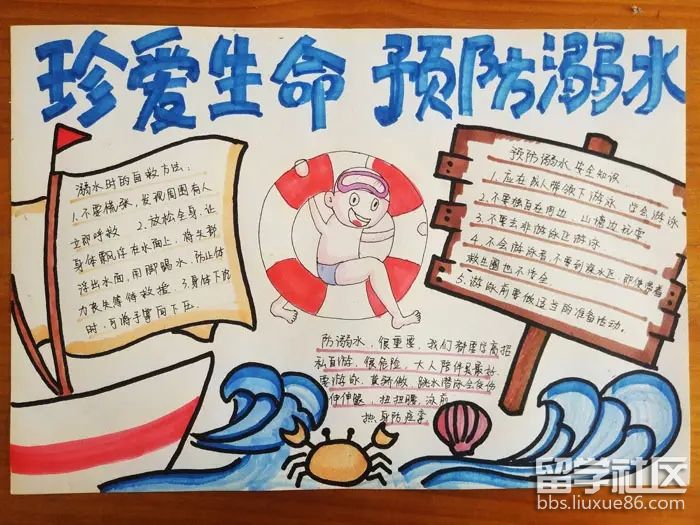 珍爱生命 预防溺水
溺水时的自救方法:
1.不要慌张,发现周围有人
立即呼救 2.放松全身,让
身体飘浮在水面上,将头部
浮出水面,用脚踢水,防止体
力丧失,等待救援 3.身体下沉
时,可将手掌向下压。
预防溺水安全知识
1.应在成人带领下游泳 学会游泳
2.不要独自在河边 山塘边玩耍
3.不要去非游泳区游泳
4.不会游泳者,不要到深水区,即使带着
救生圈也不安全
5.游泳前要做适当的准备活动。
防溺水,很重要,我们都要学高招
私自游,很危险,大人陪伴是最好
要游泳,莫 跳水潜泳会受伤
伸伸腿,扭扭腰,泳前
热身防痉挛
留学社区
bbs.liuxue86.com